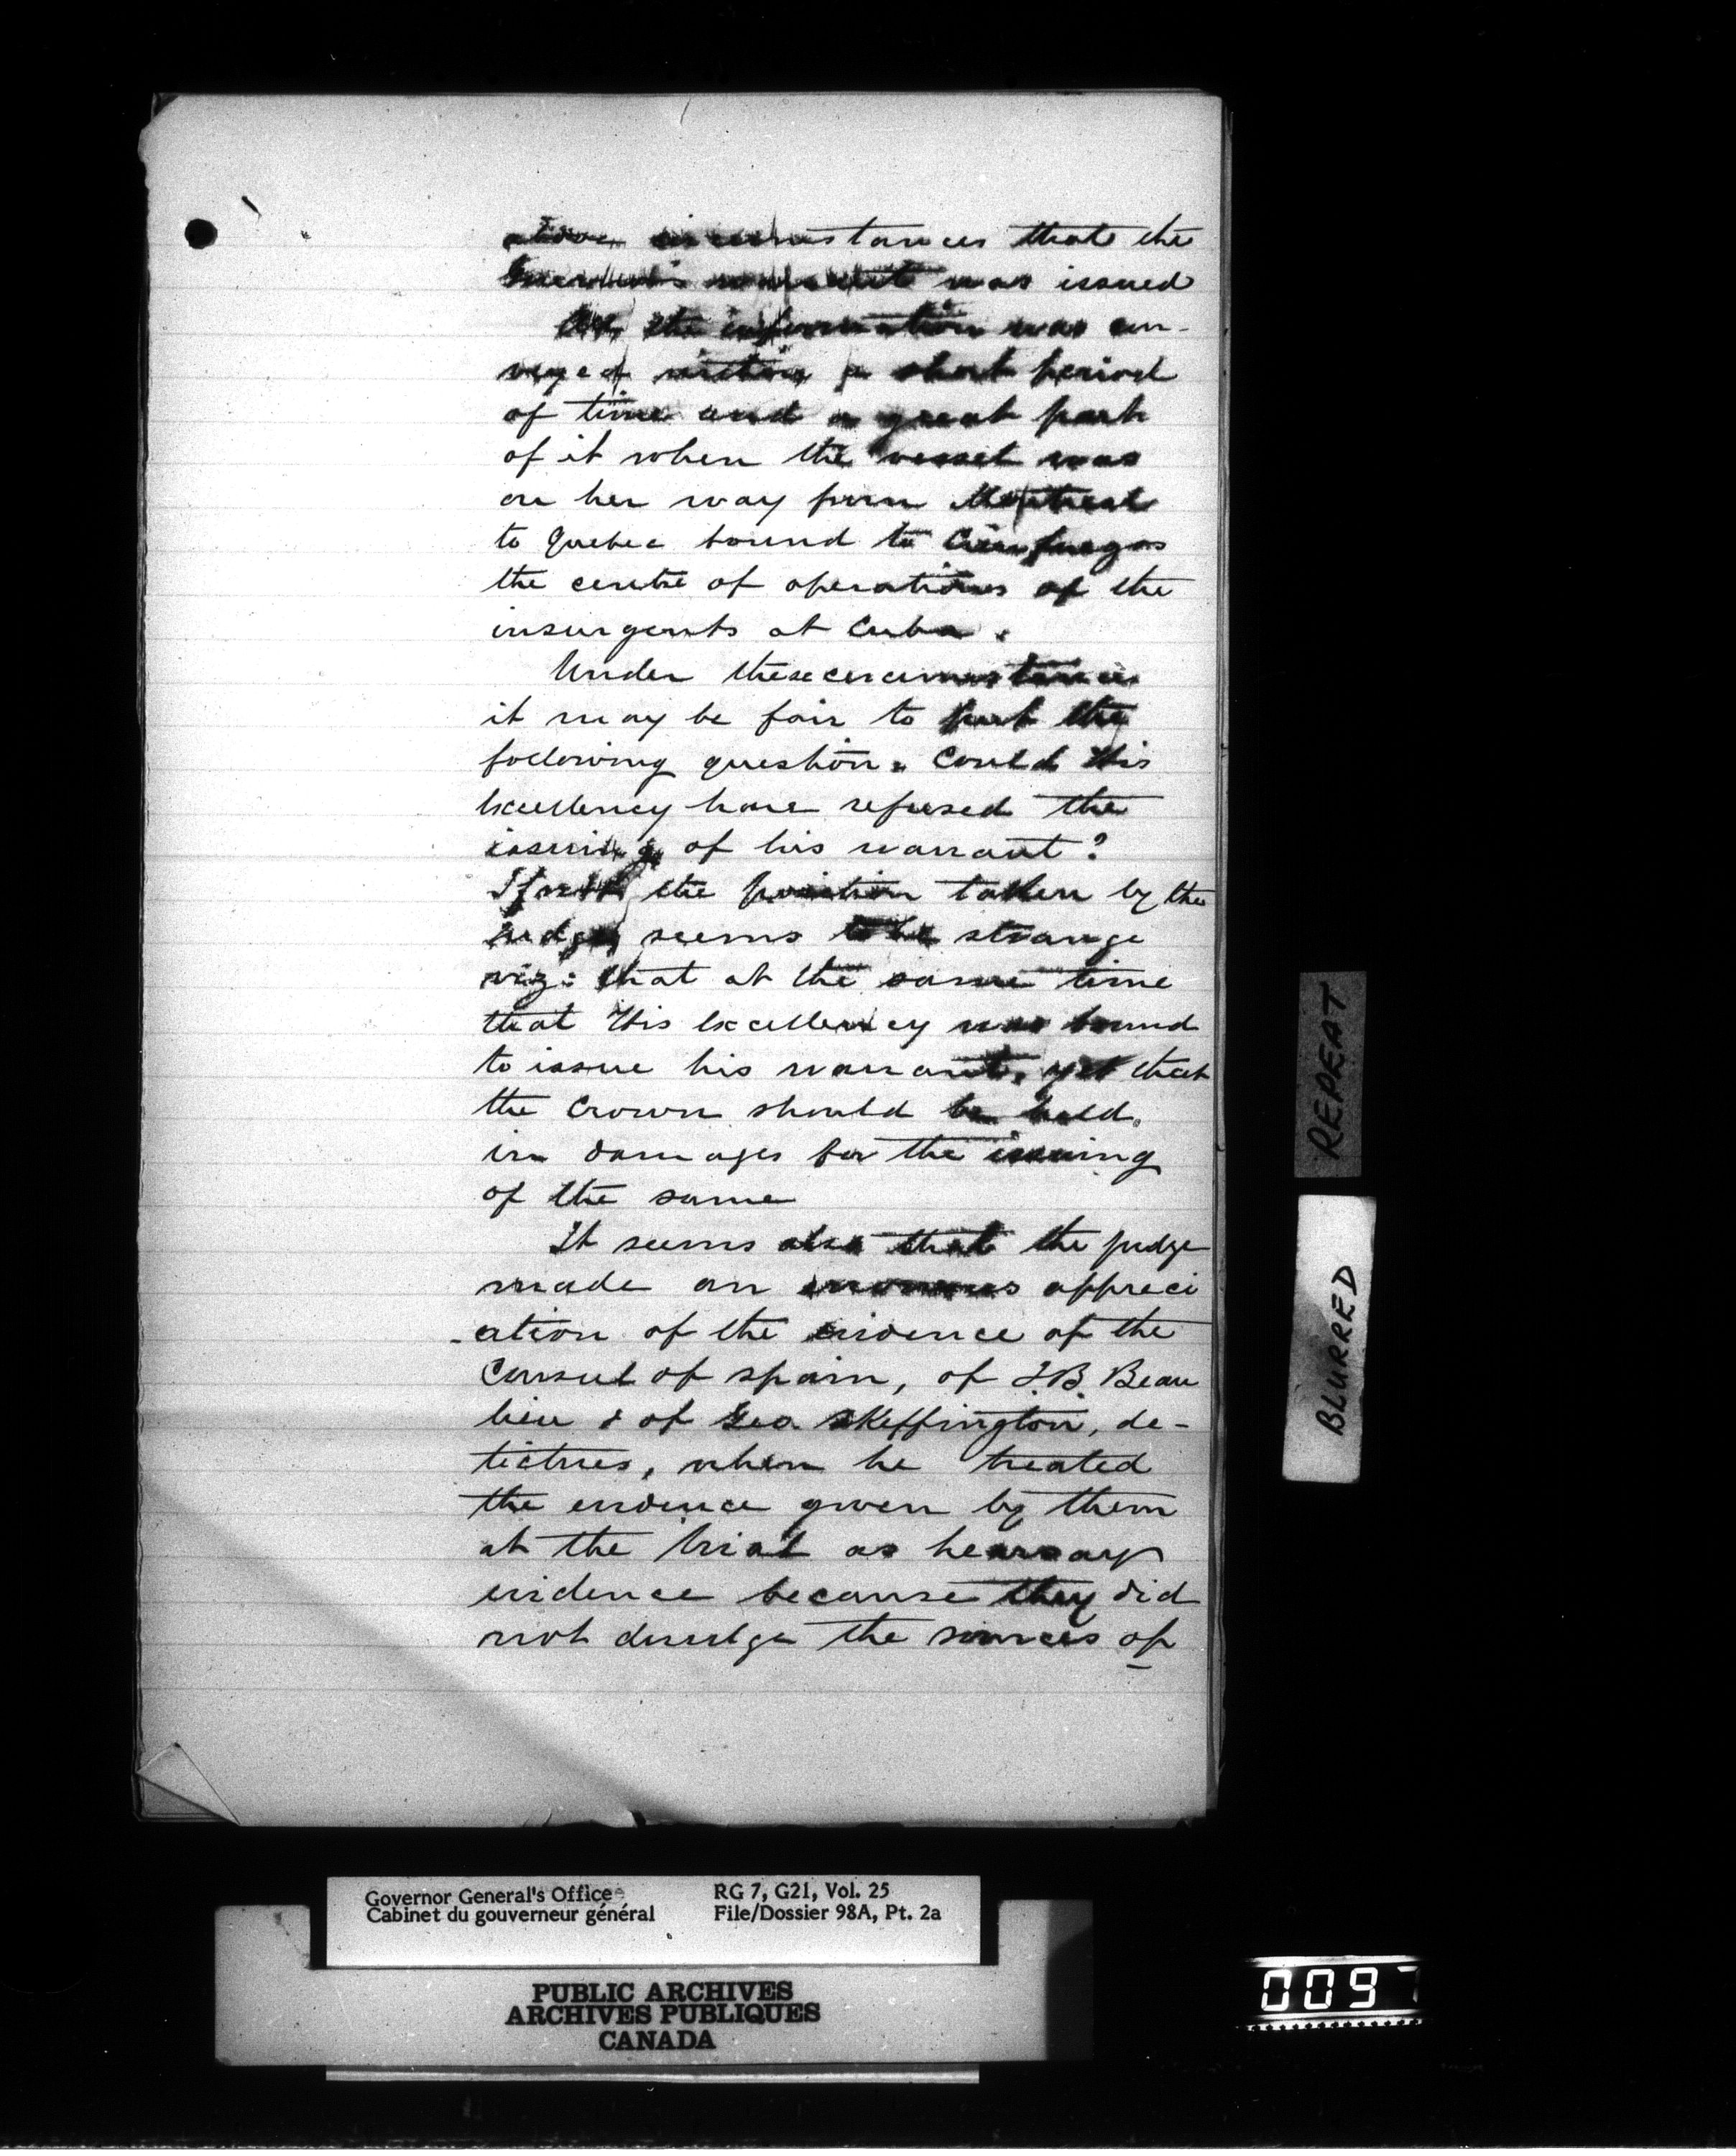 above circumstances that the
Governor's warrant was issued
All the information was con-
veyed within a short period
of time and a great part
of it when the vessel was
on her way from Montreal
to Quebec bound to Cienfuegos
the centre of operations of the
insurgents at Cuba.
Under these circumstances
it may be fair to put the
following question. Could His
Excellency have refused the
issuing of his warrant?
If not the position taken by the
Judge, seems to be strange
viz: that at the same time
that His Excellency was bound
to issue his warrant, yet that
the Crown should be held
in damages for the issuing
of the same
It seems also that the judge
made an erroneous appreci
-ation of the evidence of the
Consul of Spain, of J.B. Beau
lieu & of Geo. Skeffington, de-
tectives, when he treated
the evidence given by them
at the trial as hearsay
evidence because they did
not divulge the sources of
REPEAT
BLURRED
Governor General's Office
Cabinet du gouverneur général
RG 7, G21, Vol. 25
File/Dossier 98A, Pt. 2a
PUBLIC ARCHIVES
ARCHIVES PUBLIQUES
CANADA
0097